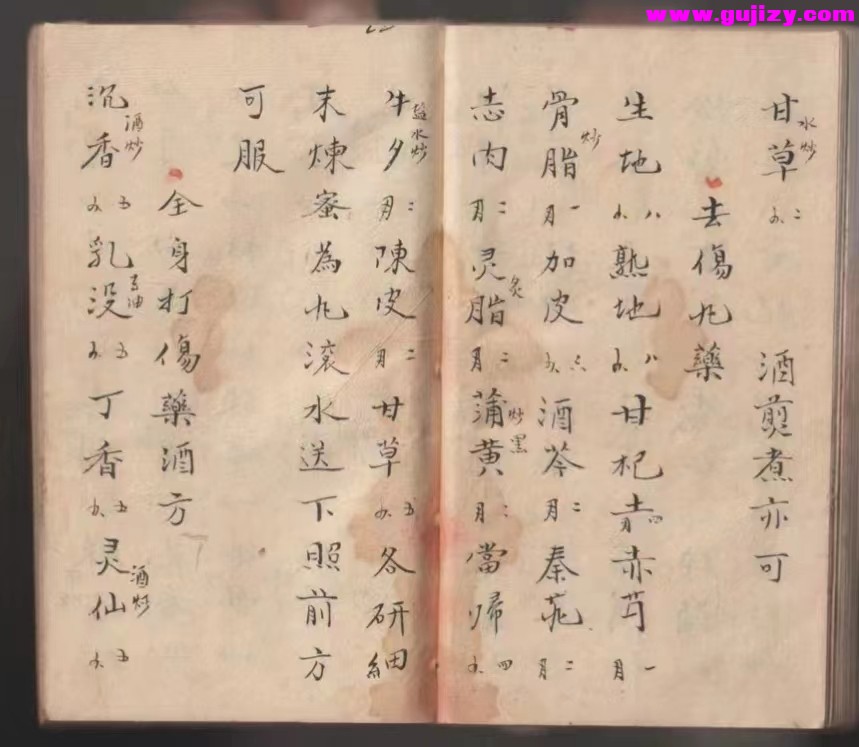 www.gujizy.com
甘草水炒二 酒煎煮亦可
去傷丸藥
生地八 熟地八 甘杞四 赤芍一月
骨脂炒一月 加皮六 酒芩二月 秦艽二月
志肉二月 灵脂炙二月 蒲黄炒黑二月 當歸四
牛夕盐水炒二月 陳皮二月 甘草五 各研細
末煉蜜為丸滚水送下照前方
可服
全身打傷藥酒方
沉香酒炒五 乳没去油五 丁香五 灵仙酒炒五